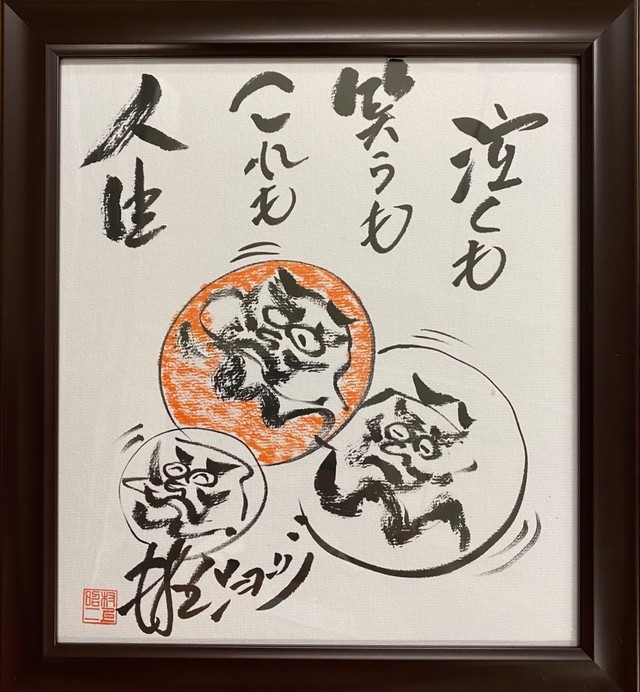 泣くも
笑うも
これも
人生